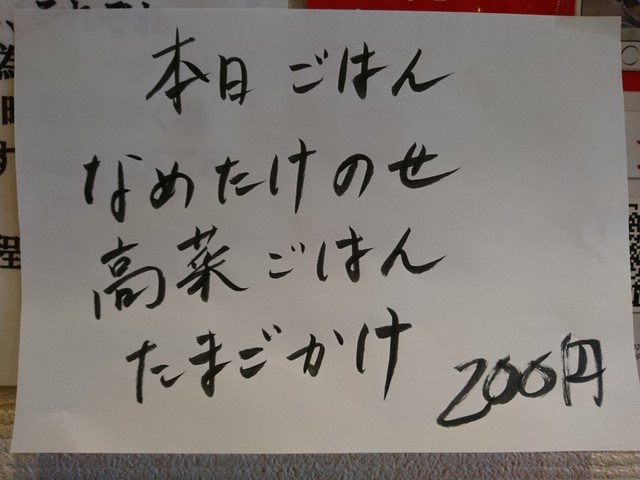 本日ごはん
なめたけのせ
高菜ごはん
たまごかけ
200円